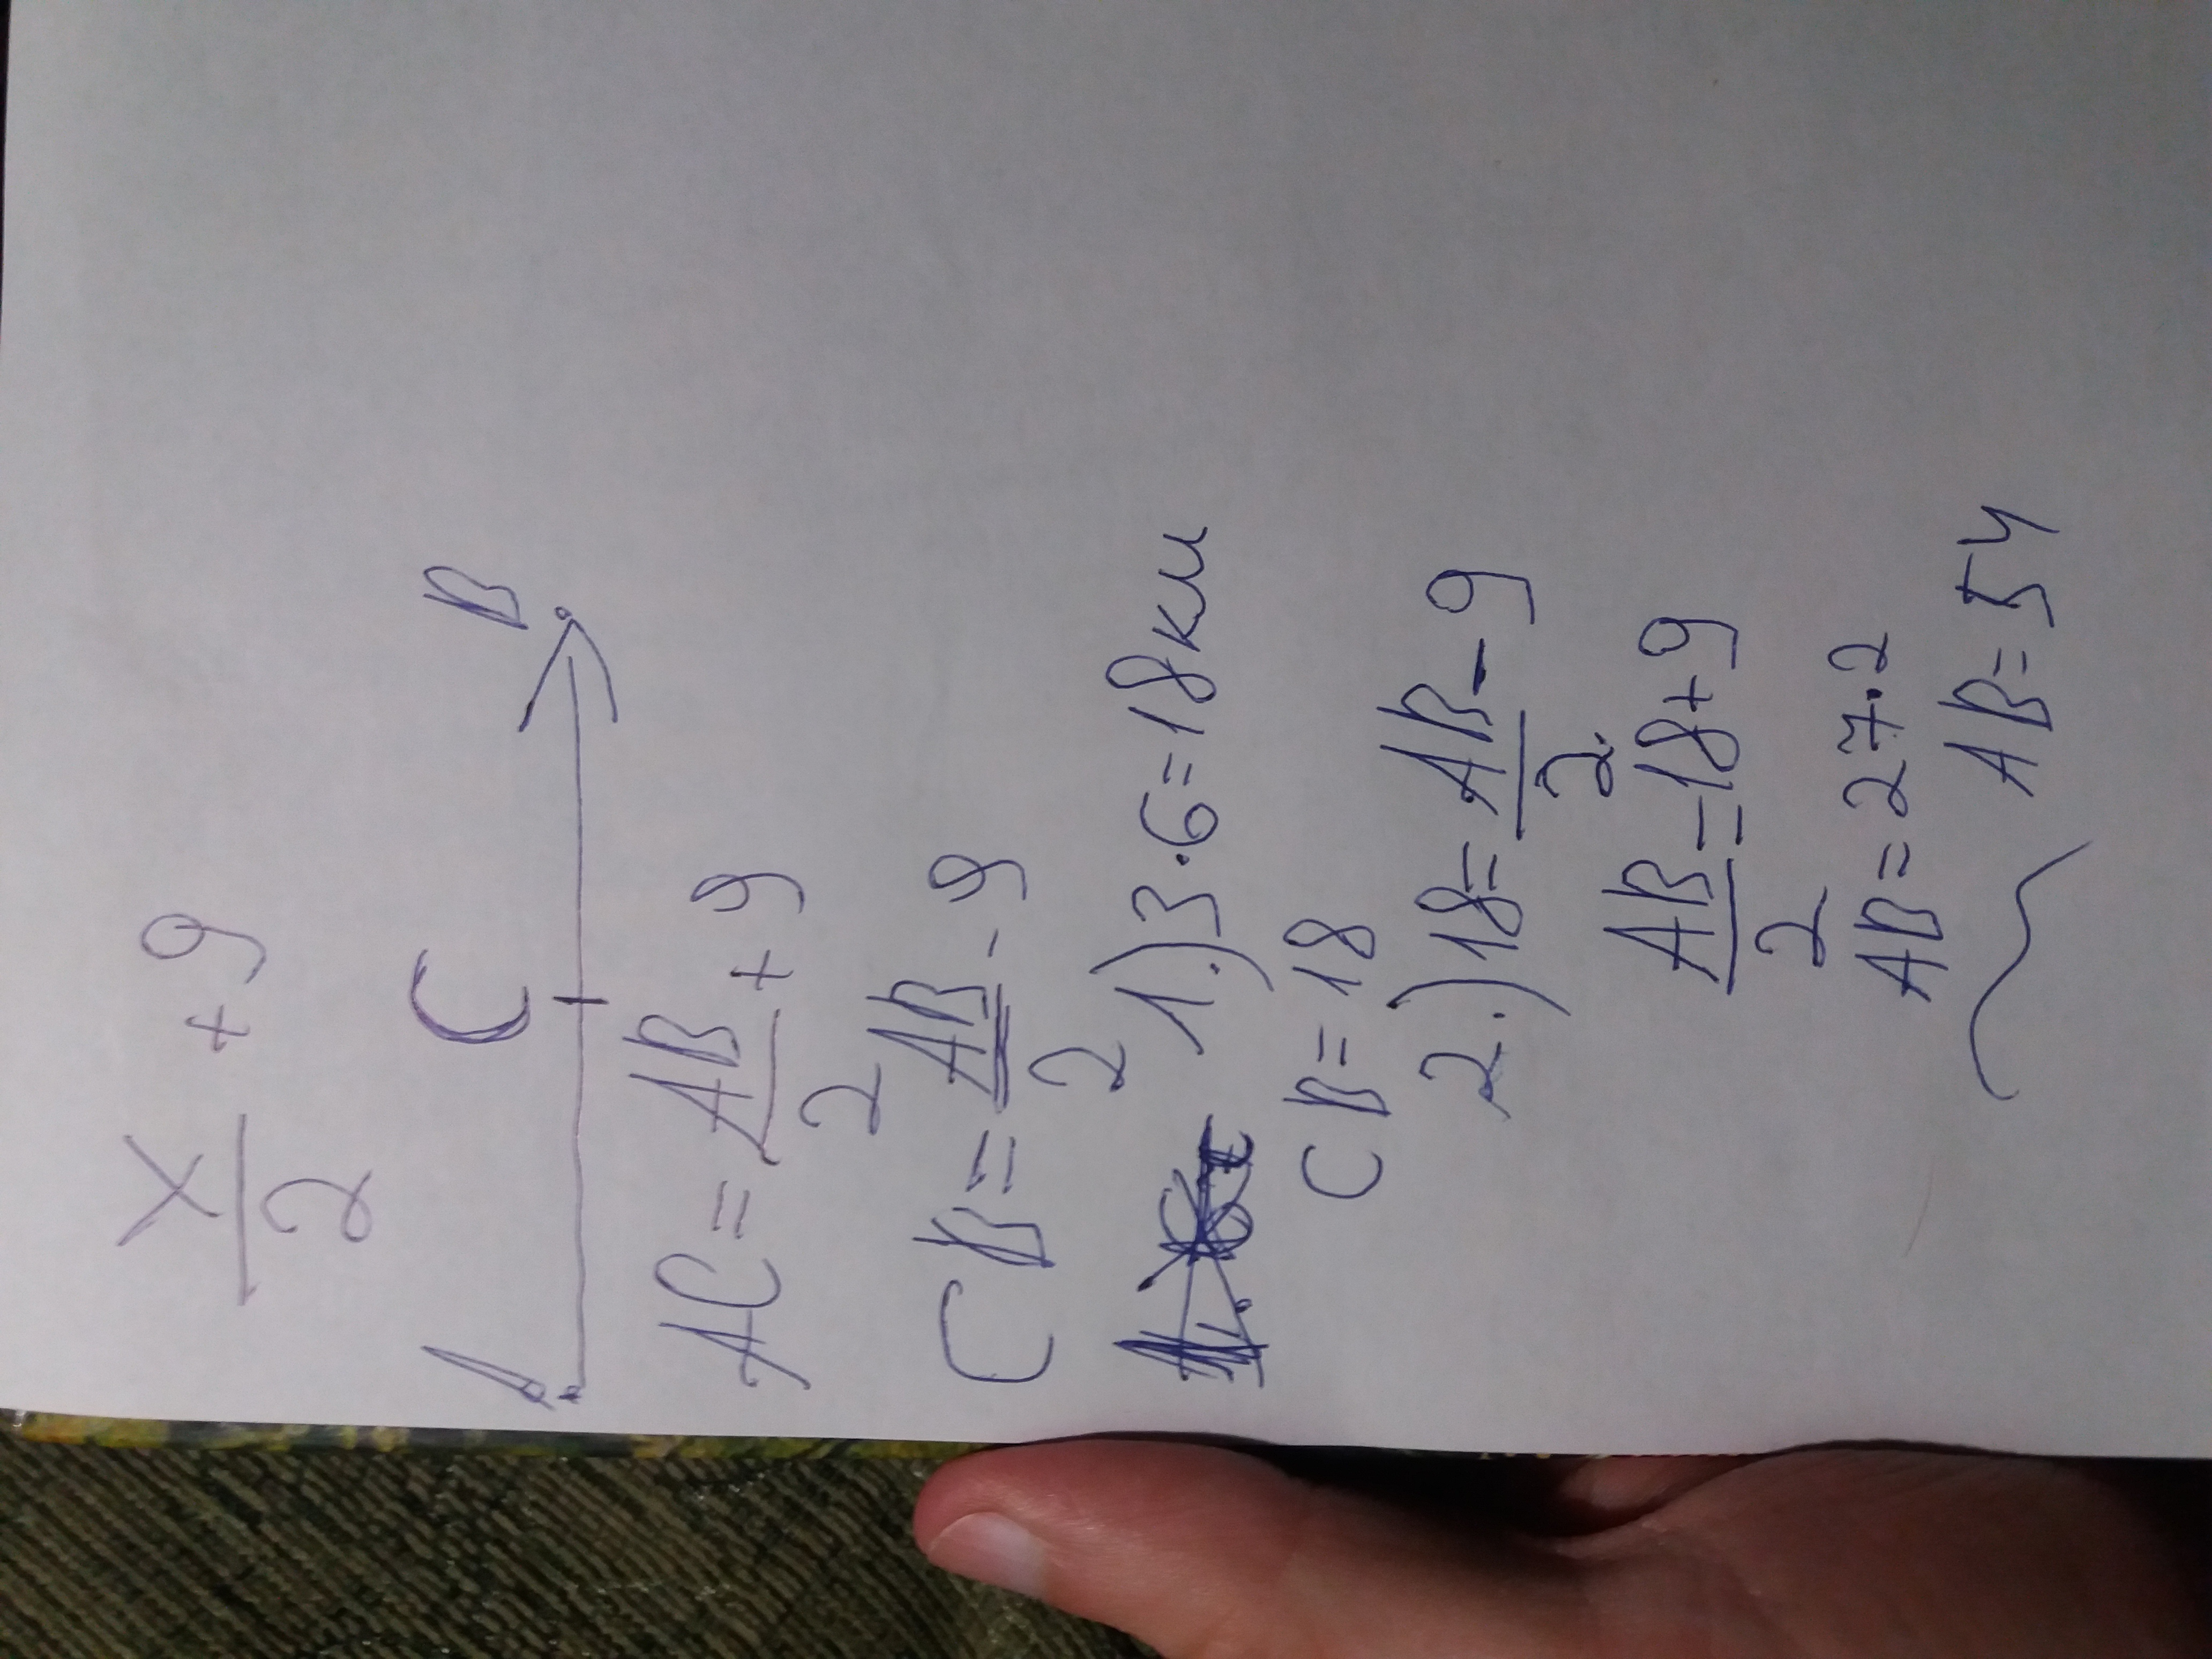 x/2 + 9
A C B
AC = AB/2 + 9
CB = AB/2 - 9
1.) 3·6=18км
CB=18
2.) 18= AB/2 - 9
AB/2 =18+9
AB=27·2
AB=54